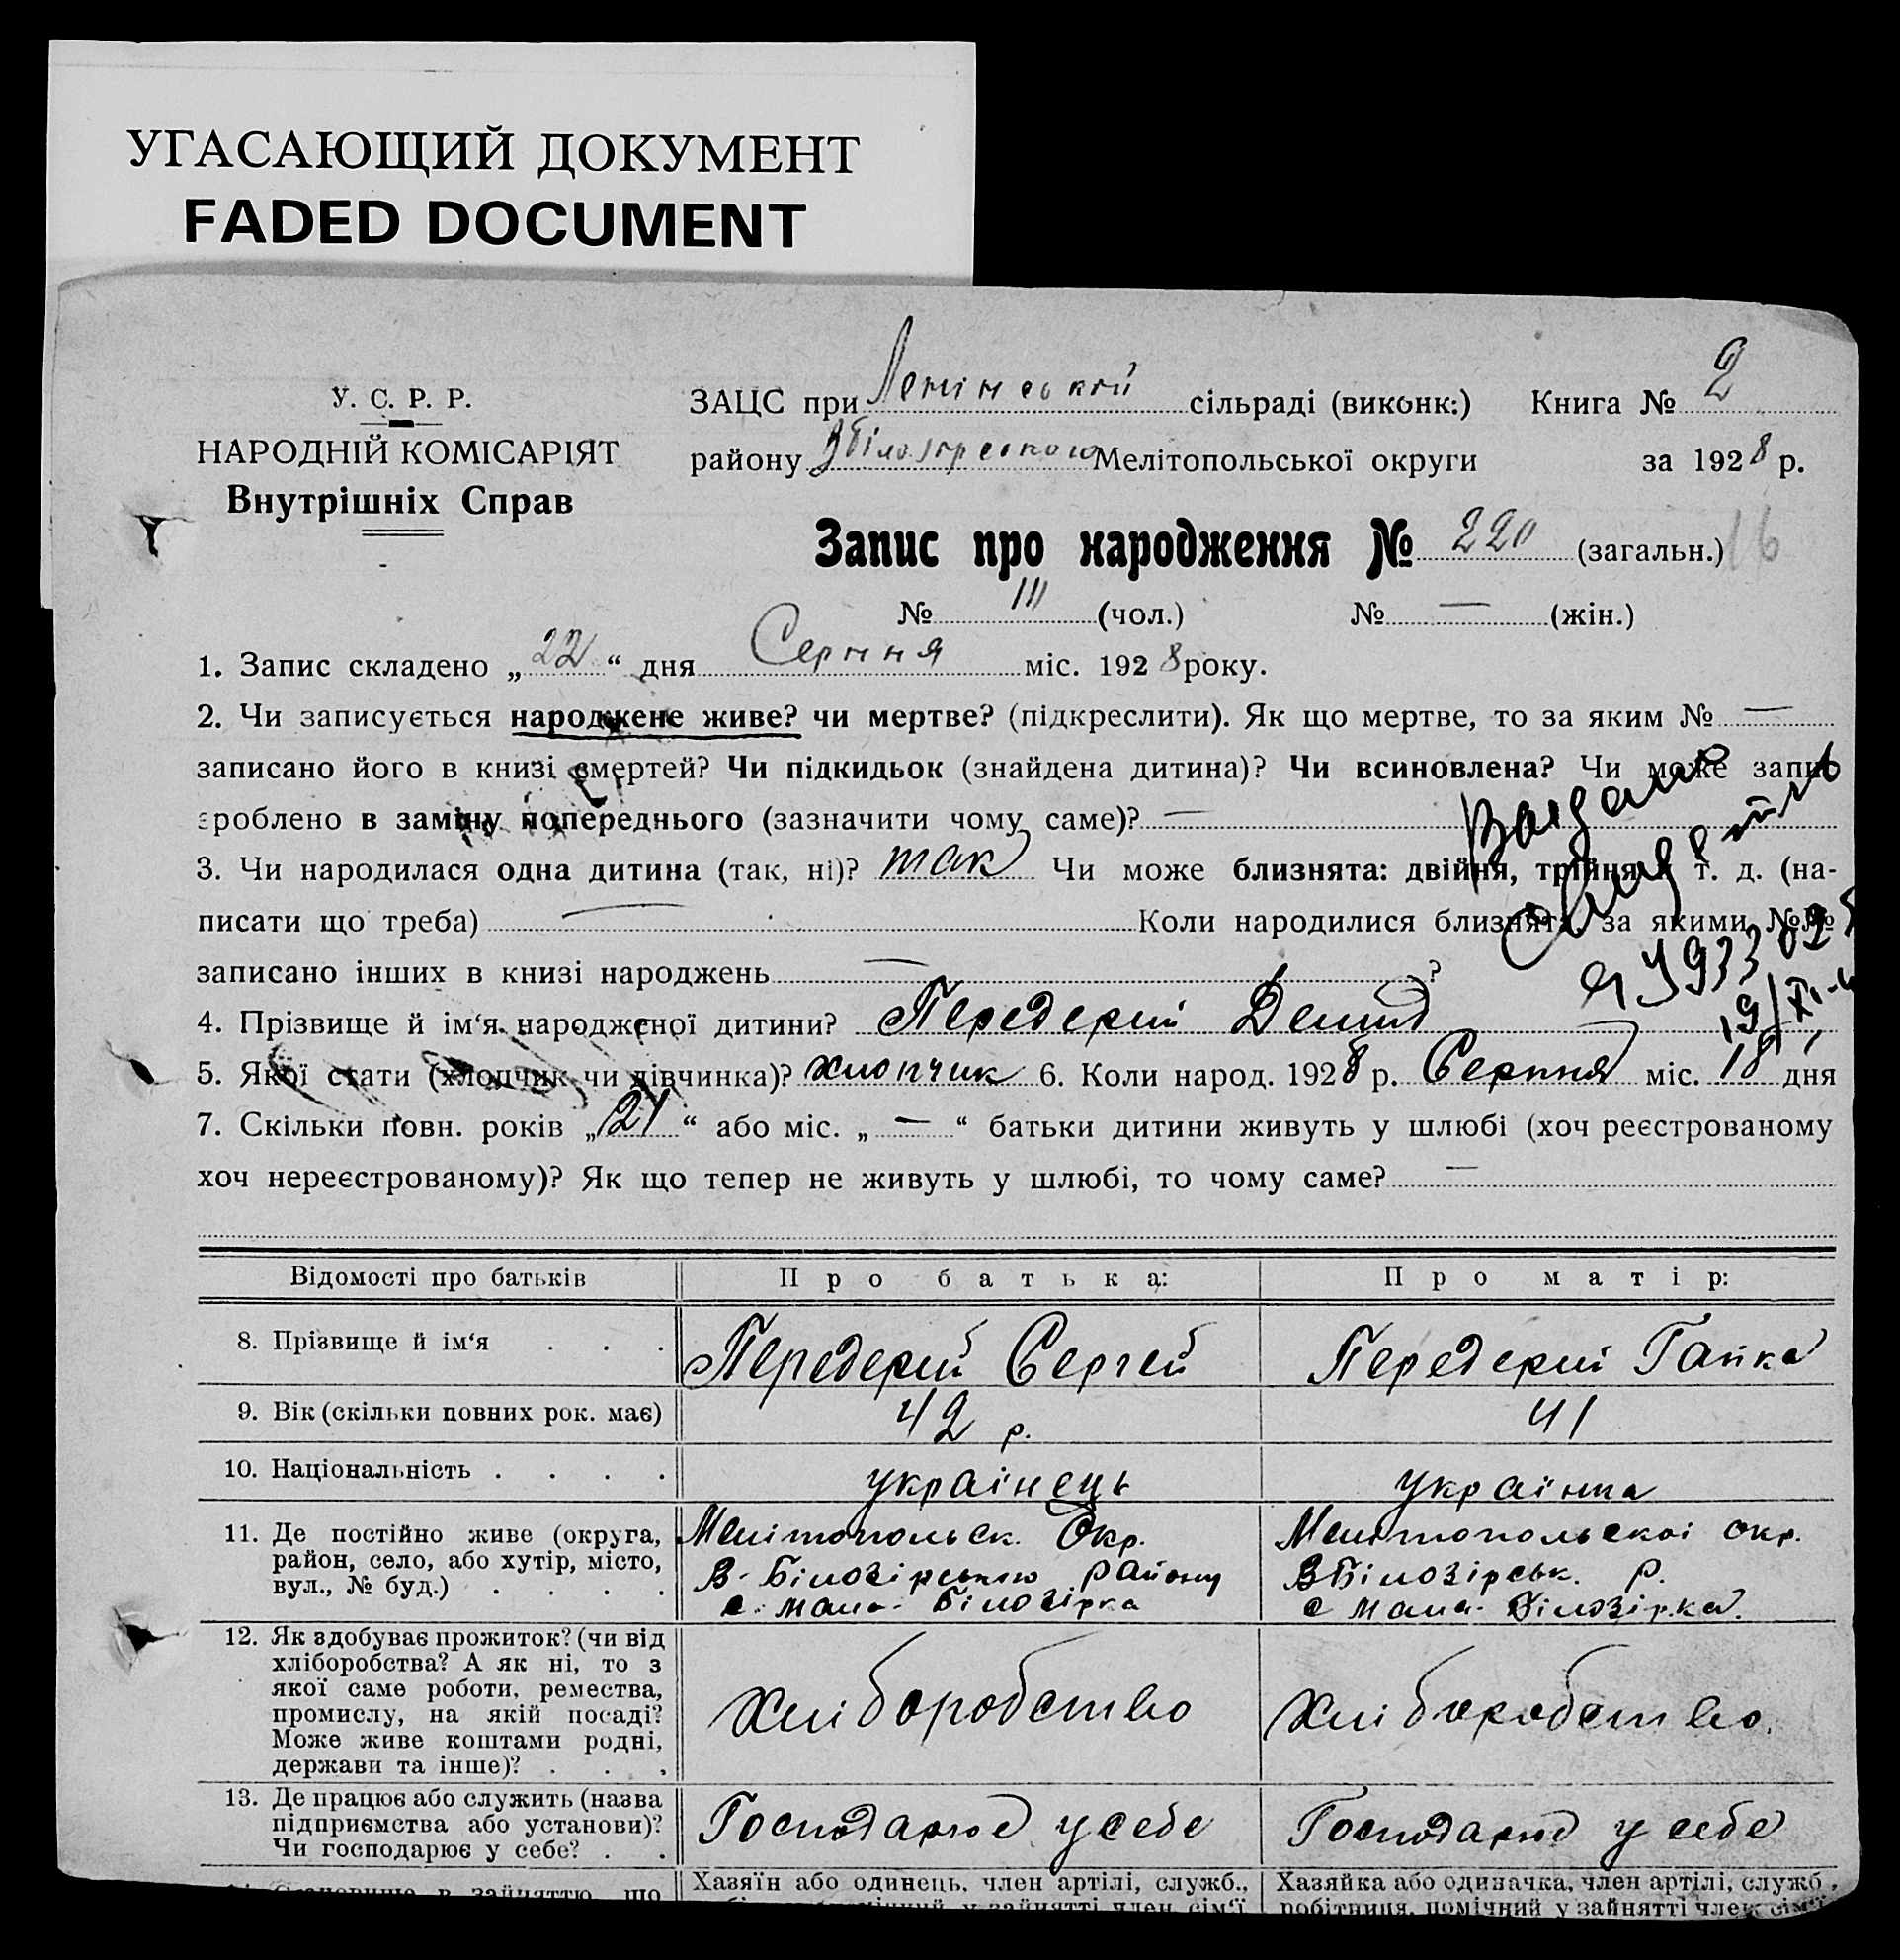 УГАСАЮЩИЙ ДОКУМЕНТ
FADED DOCUMENT
У. С. Р. Р.
НАРОДНІЙ КОМІСАРІЯТ
Внутрішніх Справ
ЗАЦС при Ленінській сільраді (виконк:) Книга № 2
району Мелітопольської округи за 1928 р.
Запис про народження № 220 (загальн.) 16
№ 111 (чол.) № — (жін.)
1. Запис складено „22“ дня Серпня міс. 1928 року.
2. Чи записується народжене живе? чи мертве? (підкреслити). Як що мертве, то за яким № —
записано його в книзі смертей? Чи підкидьок (знайдена дитина)? Чи всиновлена? Чи може запис
зроблено в заміну попереднього (зазначити чому саме)? —
3. Чи народилася одна дитина (так, ні)? так Чи може близнята: двійня, трійня т. д. (на-
писати що треба) — Коли народилися близнята за якими №№
записано інших в книзі народжень — ?
4. Прізвище й ім‘я народженої дитини? Передерій Демид
19/XI
5. Якої стати (хлопчик чи дівчинка)? хлопчик 6. Коли народ. 1928 р. Серпня міс. 18 дня
7. Скільки повн. років „21“ або міс. „—“ батьки дитини живуть у шлюбі (хоч реєстрованому
хоч нереєстрованому)? Як що тепер не живуть у шлюбі, то чому саме? —
Відомості про батьків Про батька: Про матір:
8. Прізвище й ім‘я . . . Передерій Сергей Передерій Гапка
9. Вік (скільки повних рок. має) 42 р. 41
10. Національність . . . . українець українка
11. Де постійно живе (округа, Мелітопольск. Окр. Мелітопольскоі окр.
район, село, або хутір, місто, В-Білозірського району ВБілозірськ. р.
вул., № буд.) . . . . с. Мала-Білозірка с Мала-Білозірка.
12. Як здобуває прожиток? (чи від
хліборобства? А як ні, то з
якої саме роботи, ремества,
промислу, на якій посаді? хліборобство хліборобство.
Може живе коштами родні,
держави та інше)? . . .
13. Де працює або служить (назва
підприємства або установи)? Господарює у себе Господарює у себе
Чи господарює у себе? . .
Хазяїн або одинець, член артілі, служб., Хазяйка або одиначка, член артілі, служб.,
в зайняттю, що у зайнятті член сім‘ї робітниця, помічний у зайнятті член сім‘ї